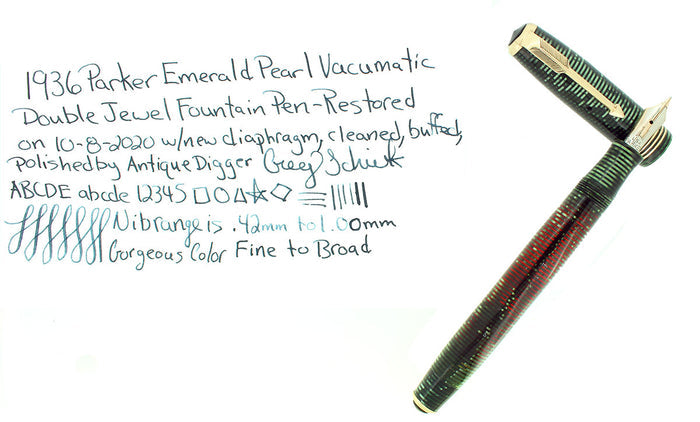 1936 Parker Emerald Pearl Vacumatic
Double Jewel Fountain Pen-Restored
on 10-8-2020 w/new diaphragm, cleaned, buffed,
Polished by Antique Digger Greg
ABCDE abcde 12345
Nib range is .42mm to 1.00mm
Gorgeous Color Fine to Broad